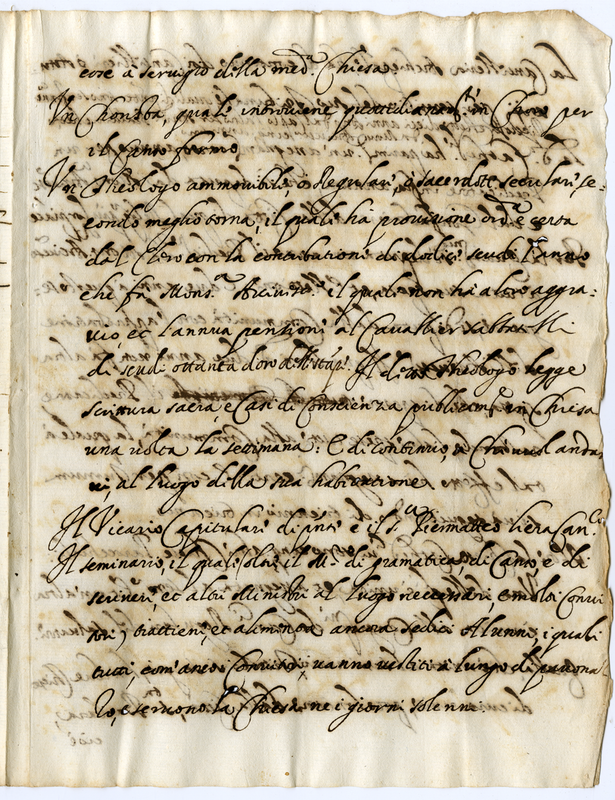 core a servigio della med.ma Chiesa
Un Chorista, quale interviene quottidianam.te in Choro per
il Canto fermo
Un Theologo ammovibile, o Regulare, o sacerdote seculare, se-
condo meglio torna, il quale ha provisione ord.a e certa
dal Clero con la contributione di dodici scudi l'anno
che fa Mons.r Arciv.o il quale non ha altro aggra-
vio, et l'annua pensione al Cavallier
di scudi ottanta d'oro Il detto Theologo legge
scrittura sacra, e Casi di Conscienza publicam.te in Chiesa
una volta la settimana: E di continuo, a Chi vuol anda
vi, al luogo della sua habitatione
Il Vicario Capitulare di è il s.r Piermatteo Can.co
Il seminario, il quale oltre il M.ro di gramatica, di Canto, e di
scrivere, et altri Ministri al luogo necessarii, e molti Convi
tori, trattiene, et alimenta ancora sedici Alunni, i quali
tutti, com'anco i Convitori, vanno vestiti a lungo di pavona
zo, e servono la Chiesa ne i giorni solenni.